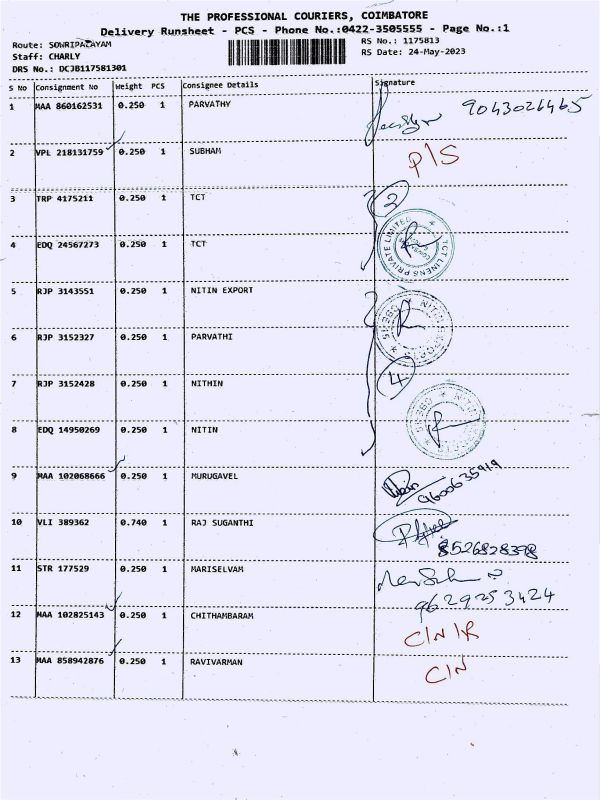 THE PROFESSIONAL COURIERS, COIMBATORE
Delivery Runsheet - PCS - Phone No.:0422-3505555 - Page No.:1
Route: SOWRIPALAYAM
RS No.: 1175813
Staff: CHARLY
RS Date: 24-May-2023
DRS No.: DCJB117581301
S No Consignment No Weight PCS Consignee Details Signature
1 MAA 860162531 0.250 1 PARVATHY 9043026465
2 VPL 218131759 0.250 1 SUBHAM P/S
3 TRP 4175211 0.250 1 TCT 2
4 EDQ 24567273 0.250 1 TCT
TCT LINENS PRIVATE LIMITED
5 RJP 3143551 0.250 1 NITIN EXPORT
6 RJP 3152327 0.250 1 PARVATHI
7 RJP 3152428 0.250 1 NITHIN 4
8 EDQ 14950269 0.250 1 NITIN
9 MAA 102068666 0.250 1 MURUGAVEL 9600635919
10 VLI 389362 0.740 1 RAJ SUGANTHI 8526828398
11 STR 177529 0.250 1 MARISELVAM 9629253424
12 MAA 102825143 0.250 1 CHITHAMBARAM C/N/R
13 MAA 858942876 0.250 1 RAVIVARMAN C/N